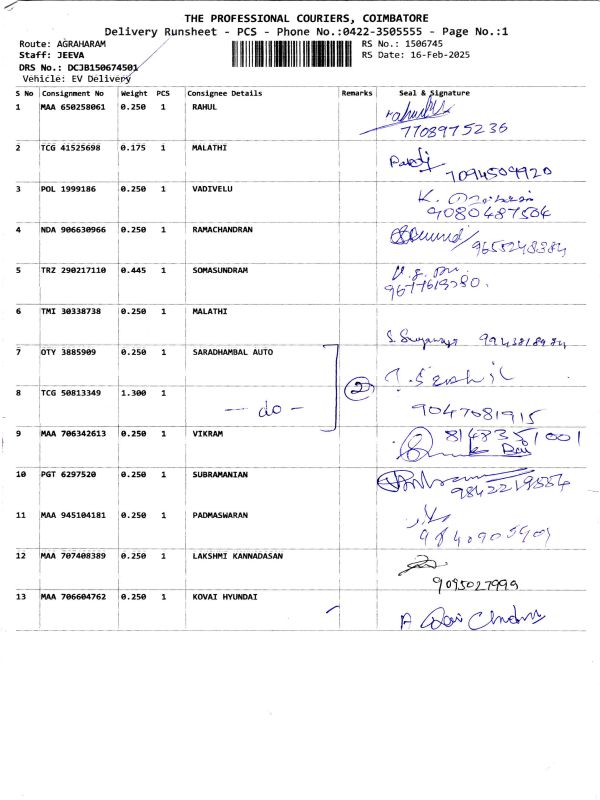 THE PROFESSIONAL COURIERS, COIMBATORE
Delivery Runsheet - PCS - Phone No.:0422-3505555 - Page No.:1
Route: AGRAHARAM RS No.: 1506745
Staff: JEEVA RS Date: 16-Feb-2025
DRS No.: DCJB150674501
Vehicle: EV Delivery
S No Consignment No Weight PCS Consignee Details Remarks Seal & Signature
1 MAA 650258061 0.250 1 RAHUL
7708975236
2 TCG 41525698 0.175 1 MALATHI
7094509920
3 POL 1999186 0.250 1 VADIVELU K.
9080487504
4 NDA 906630966 0.250 1 RAMACHANDRAN
9655248384
5 TRZ 290217110 0.445 1 SOMASUNDRAM
6 TMI 30338738 0.250 1 MALATHI
7 OTY 3885909 0.250 1 SARADHAMBAL AUTO
2
8 TCG 50813349 1.300 1
- do - 9047081915
9 MAA 706342613 0.250 1 VIKRAM 8148351001
10 PGT 6297520 0.250 1 SUBRAMANIAN
9842219554
11 MAA 945104181 0.250 1 PADMASWARAN
12 MAA 707408389 0.250 1 LAKSHMI KANNADASAN
9095027999
13 MAA 706604762 0.250 1 KOVAI HYUNDAI